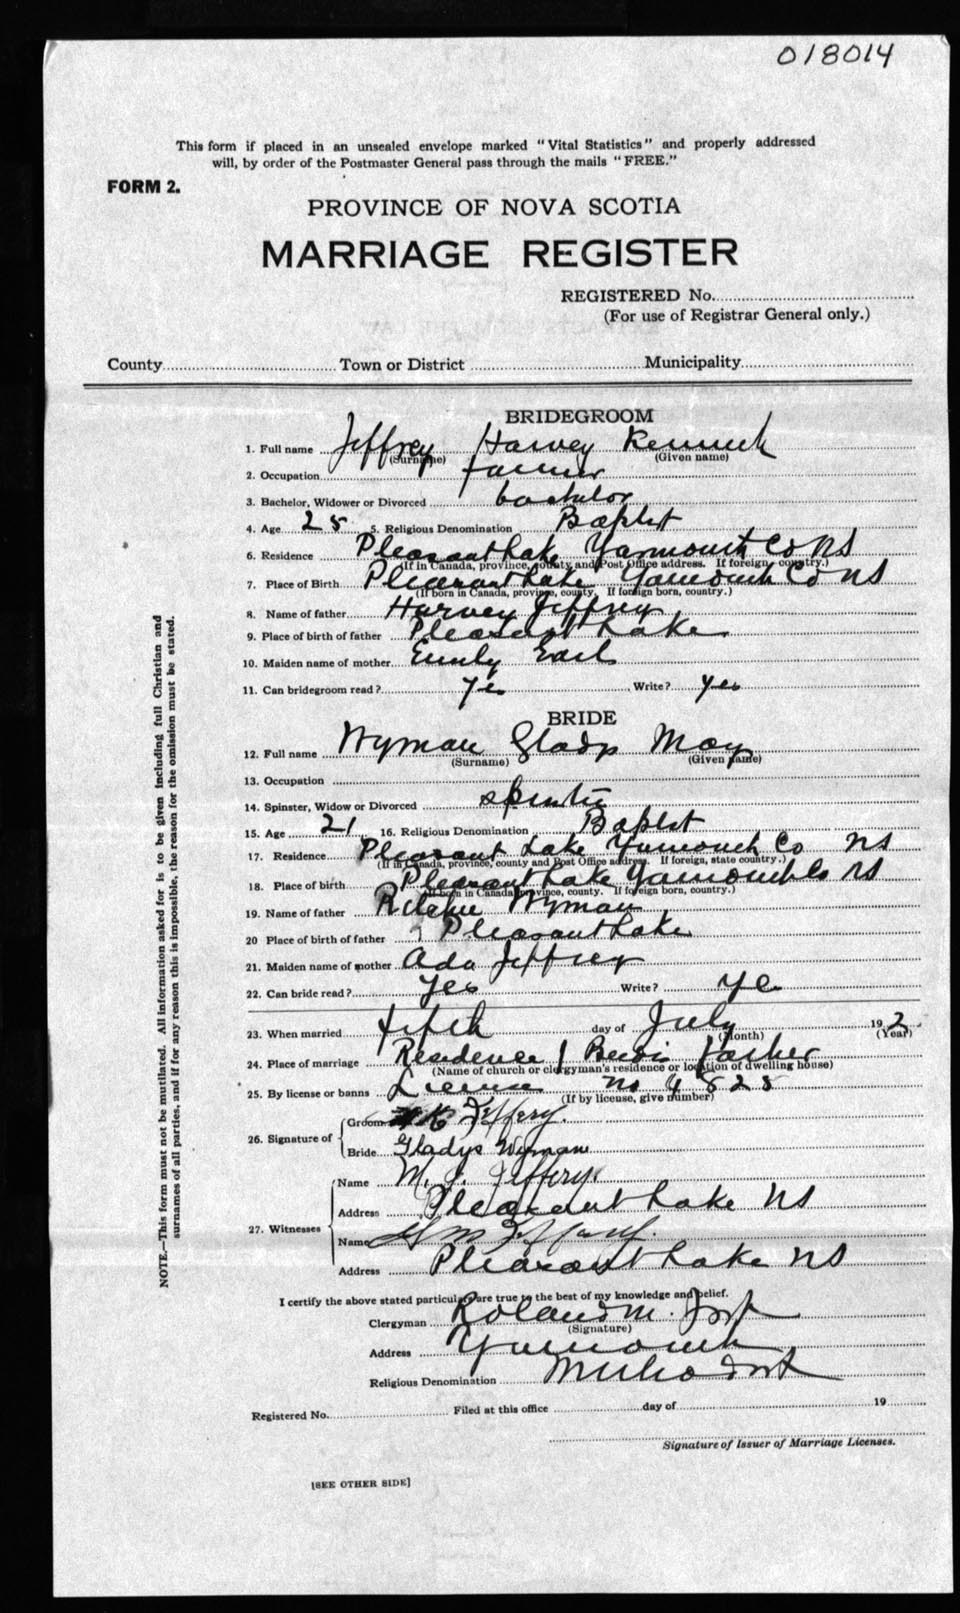 018014
This form if placed in an unsealed envelope marked "Vital Statistics" and properly addressed
will, by order of the Postmaster General pass through the mails "FREE."
FORM 2.
PROVINCE OF NOVA SCOTIA
MARRIAGE REGISTER
REGISTERED No.
(For use of Registrar General only.)
County Town or District Municipality
BRIDEGROOM
1. Full name Jeffrey Harvey Kenneth
(Surname) (Given name)
2. Occupation farmer
3. Bachelor, Widower or Divorced bachelor
4. Age 25 5. Religious Denomination Baptist
6. Residence Pleasant Lake Yarmouth Co NS
(If in Canada, province, county and Post Office address. If foreign, country.)
7. Place of Birth Pleasant Lake Yarmouth Co NS
(If born in Canada, province, county. If foreign born, country.)
8. Name of father Harvey Jeffrey
9. Place of birth of father Pleasant Lake
10. Maiden name of mother Emily Earl
11. Can bridegroom read? Yes Write? yes
BRIDE
12. Full name Wyman Gladys May
(Surname) (Given name)
13. Occupation
14. Spinster, Widow or Divorced spinster
15. Age 21 16. Religious Denomination Baptist
17. Residence Pleasant Lake Yarmouth Co NS
(If in Canada, province, county and Post Office address. If foreign, state country.)
18. Place of birth Pleasant Lake Yarmouth Co NS
(If born in Canada, province, county. If foreign born, country.)
19. Name of father Ritchie Wyman
20 Place of birth of father Pleasant Lake
21. Maiden name of mother Ada Jeffrey
22. Can bride read? Yes Write? Yes
23. When married fifth day of July 192
(Month) (Year)
24. Place of marriage Residence of Brides father
(Name of church or clergyman's residence or location of dwelling house)
25. By license or banns License no 4828
(If by license, give number)
26. Signature of Groom H K Jeffery.
Bride Gladys Wyman
27. Witnesses Name M. J. Jeffery.
Address Pleasant Lake NS
Name
Address Pleasant Lake NS
I certify the above stated particulars are true to the best of my knowledge and belief.
Clergyman Roland M.
(Signature)
Address Yarmouth
Religious Denomination Methodist
Registered No. Filed at this office day of 19
Signature of Issuer of Marriage Licenses.
[SEE OTHER SIDE]
NOTE.—This form must not be mutilated. All information asked for is to be given including full Christian and
surnames of all parties, and if for any reason this is impossible, the reason for the omission must be stated.